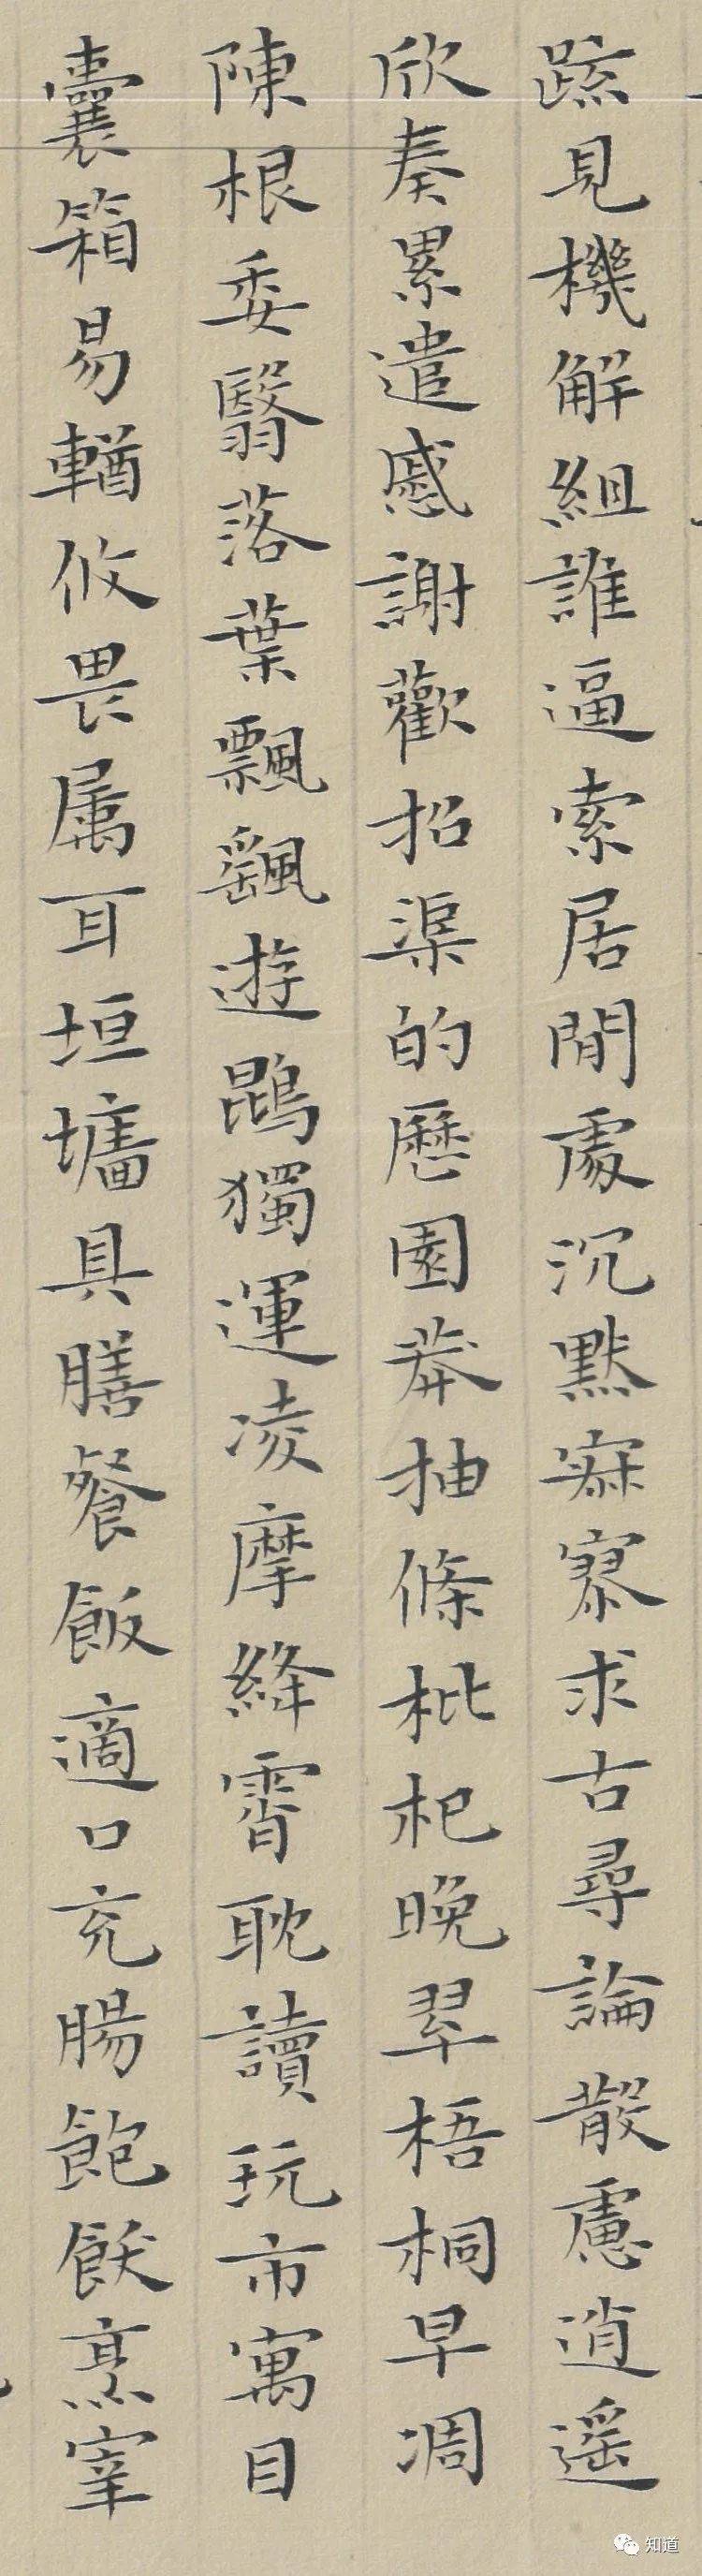 疏見機解組誰逼索居閒處沉默寂寥求古尋論散慮逍遙
欣奏累遣慼謝歡招渠的歷園莽抽條枇杷晚翠梧桐早凋
陳根委翳落葉飄颻遊鵾獨運凌摩絳霄耽讀玩市寓目
囊箱易輶攸畏属耳垣墻具膳餐飯適口充腸飽飫烹宰
知道